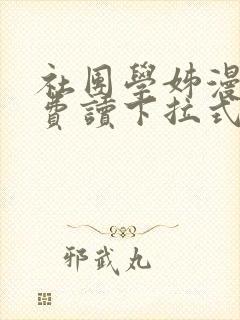 社团學姊漫
費讀下拉式
邪武丸